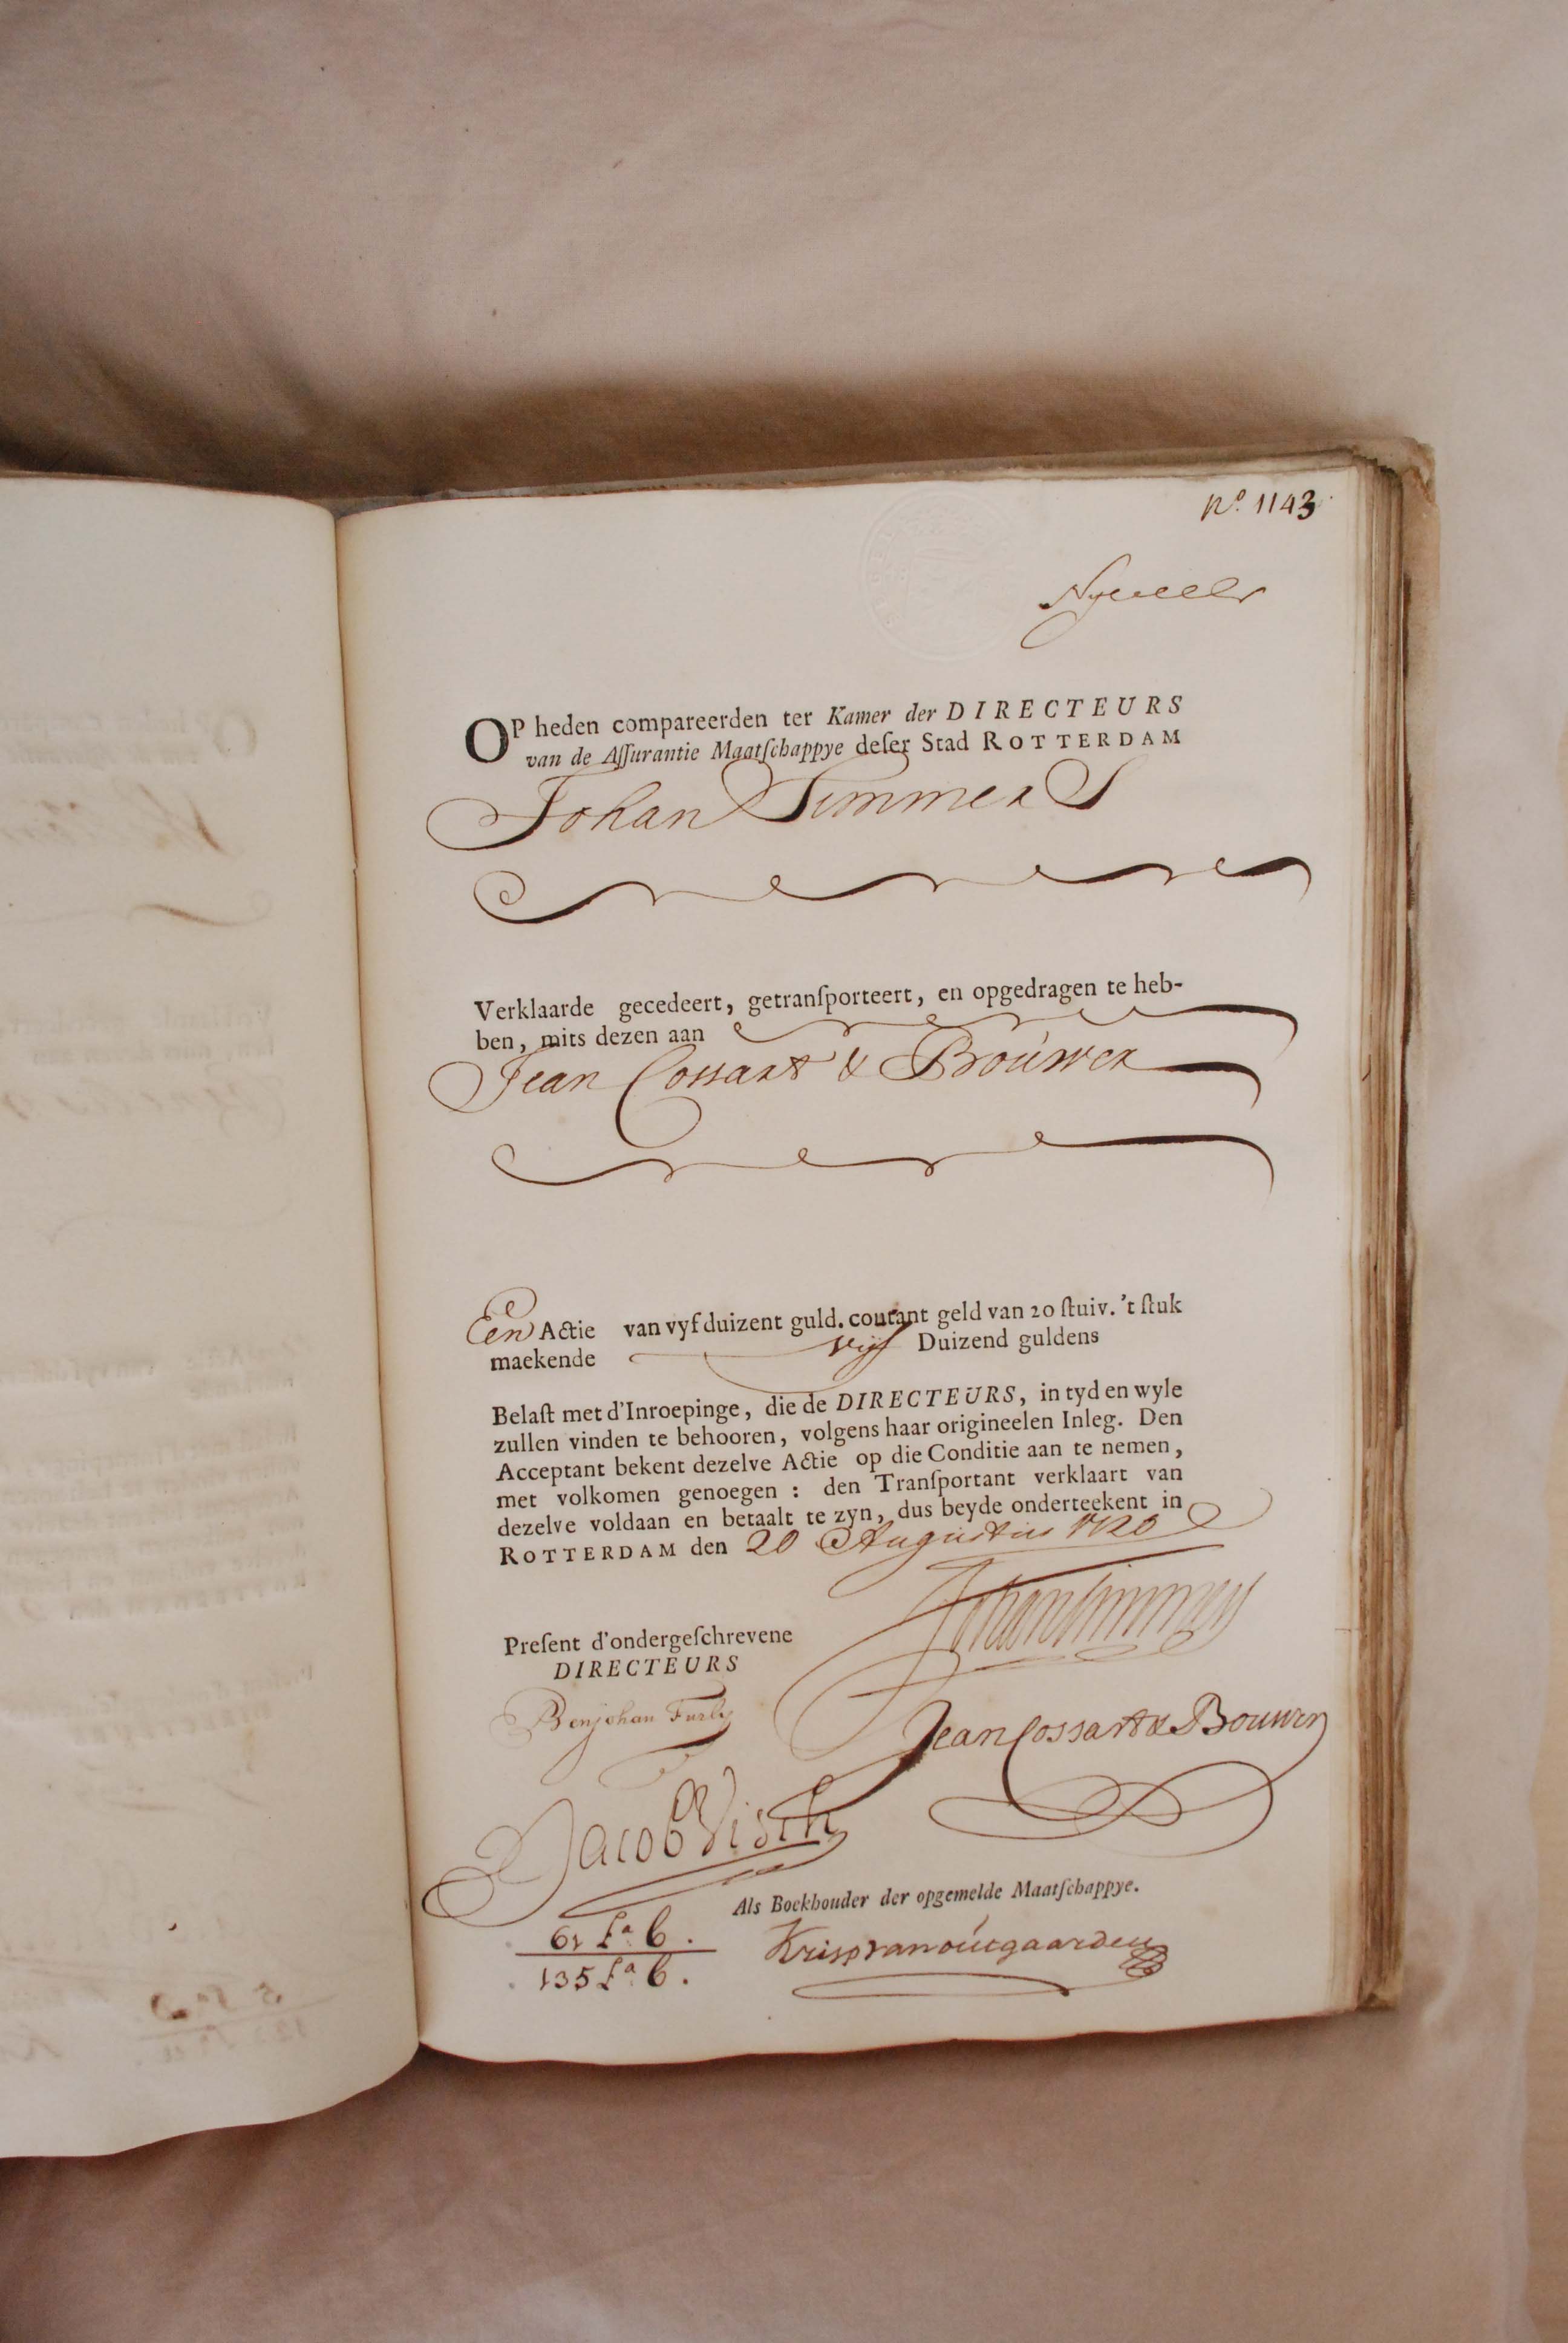 Nº. 1143
OP heden compareerden ter Kamer der DIRECTEURS
van de Aſſurantie Maatſchappye deſer Stad ROTTERDAM
Johan Timmers
Verklaarde gecedeert, getranſporteert, en opgedragen te heb-
ben, mits dezen aan
Jean Cossart & Brouwer
Een Actie van vyf duizent guld. courant geld van 20 ſtuiv. 't ſtuk
maekende vyf Duizend guldens
Belaſt met d'Inroepinge, die de DIRECTEURS, in tyd en wyle
zullen vinden te behooren, volgens haar origineelen Inleg. Den
Acceptant bekent dezelve Actie op die Conditie aan te nemen,
met volkomen genoegen : den Tranſportant verklaart van
dezelve voldaan en betaalt te zyn, dus beyde onderteekent in
ROTTERDAM den 20 Augustus 1720
Johan Timmers
Preſent d'ondergeſchrevene
DIRECTEURS
Benjohan Furly
Jean Cossart & Bouwer
Jacob Visch
Als Boekhouder der opgemelde Maatſchappye.
61 fª 6.
Kris van outgaarden
135 fª 6.